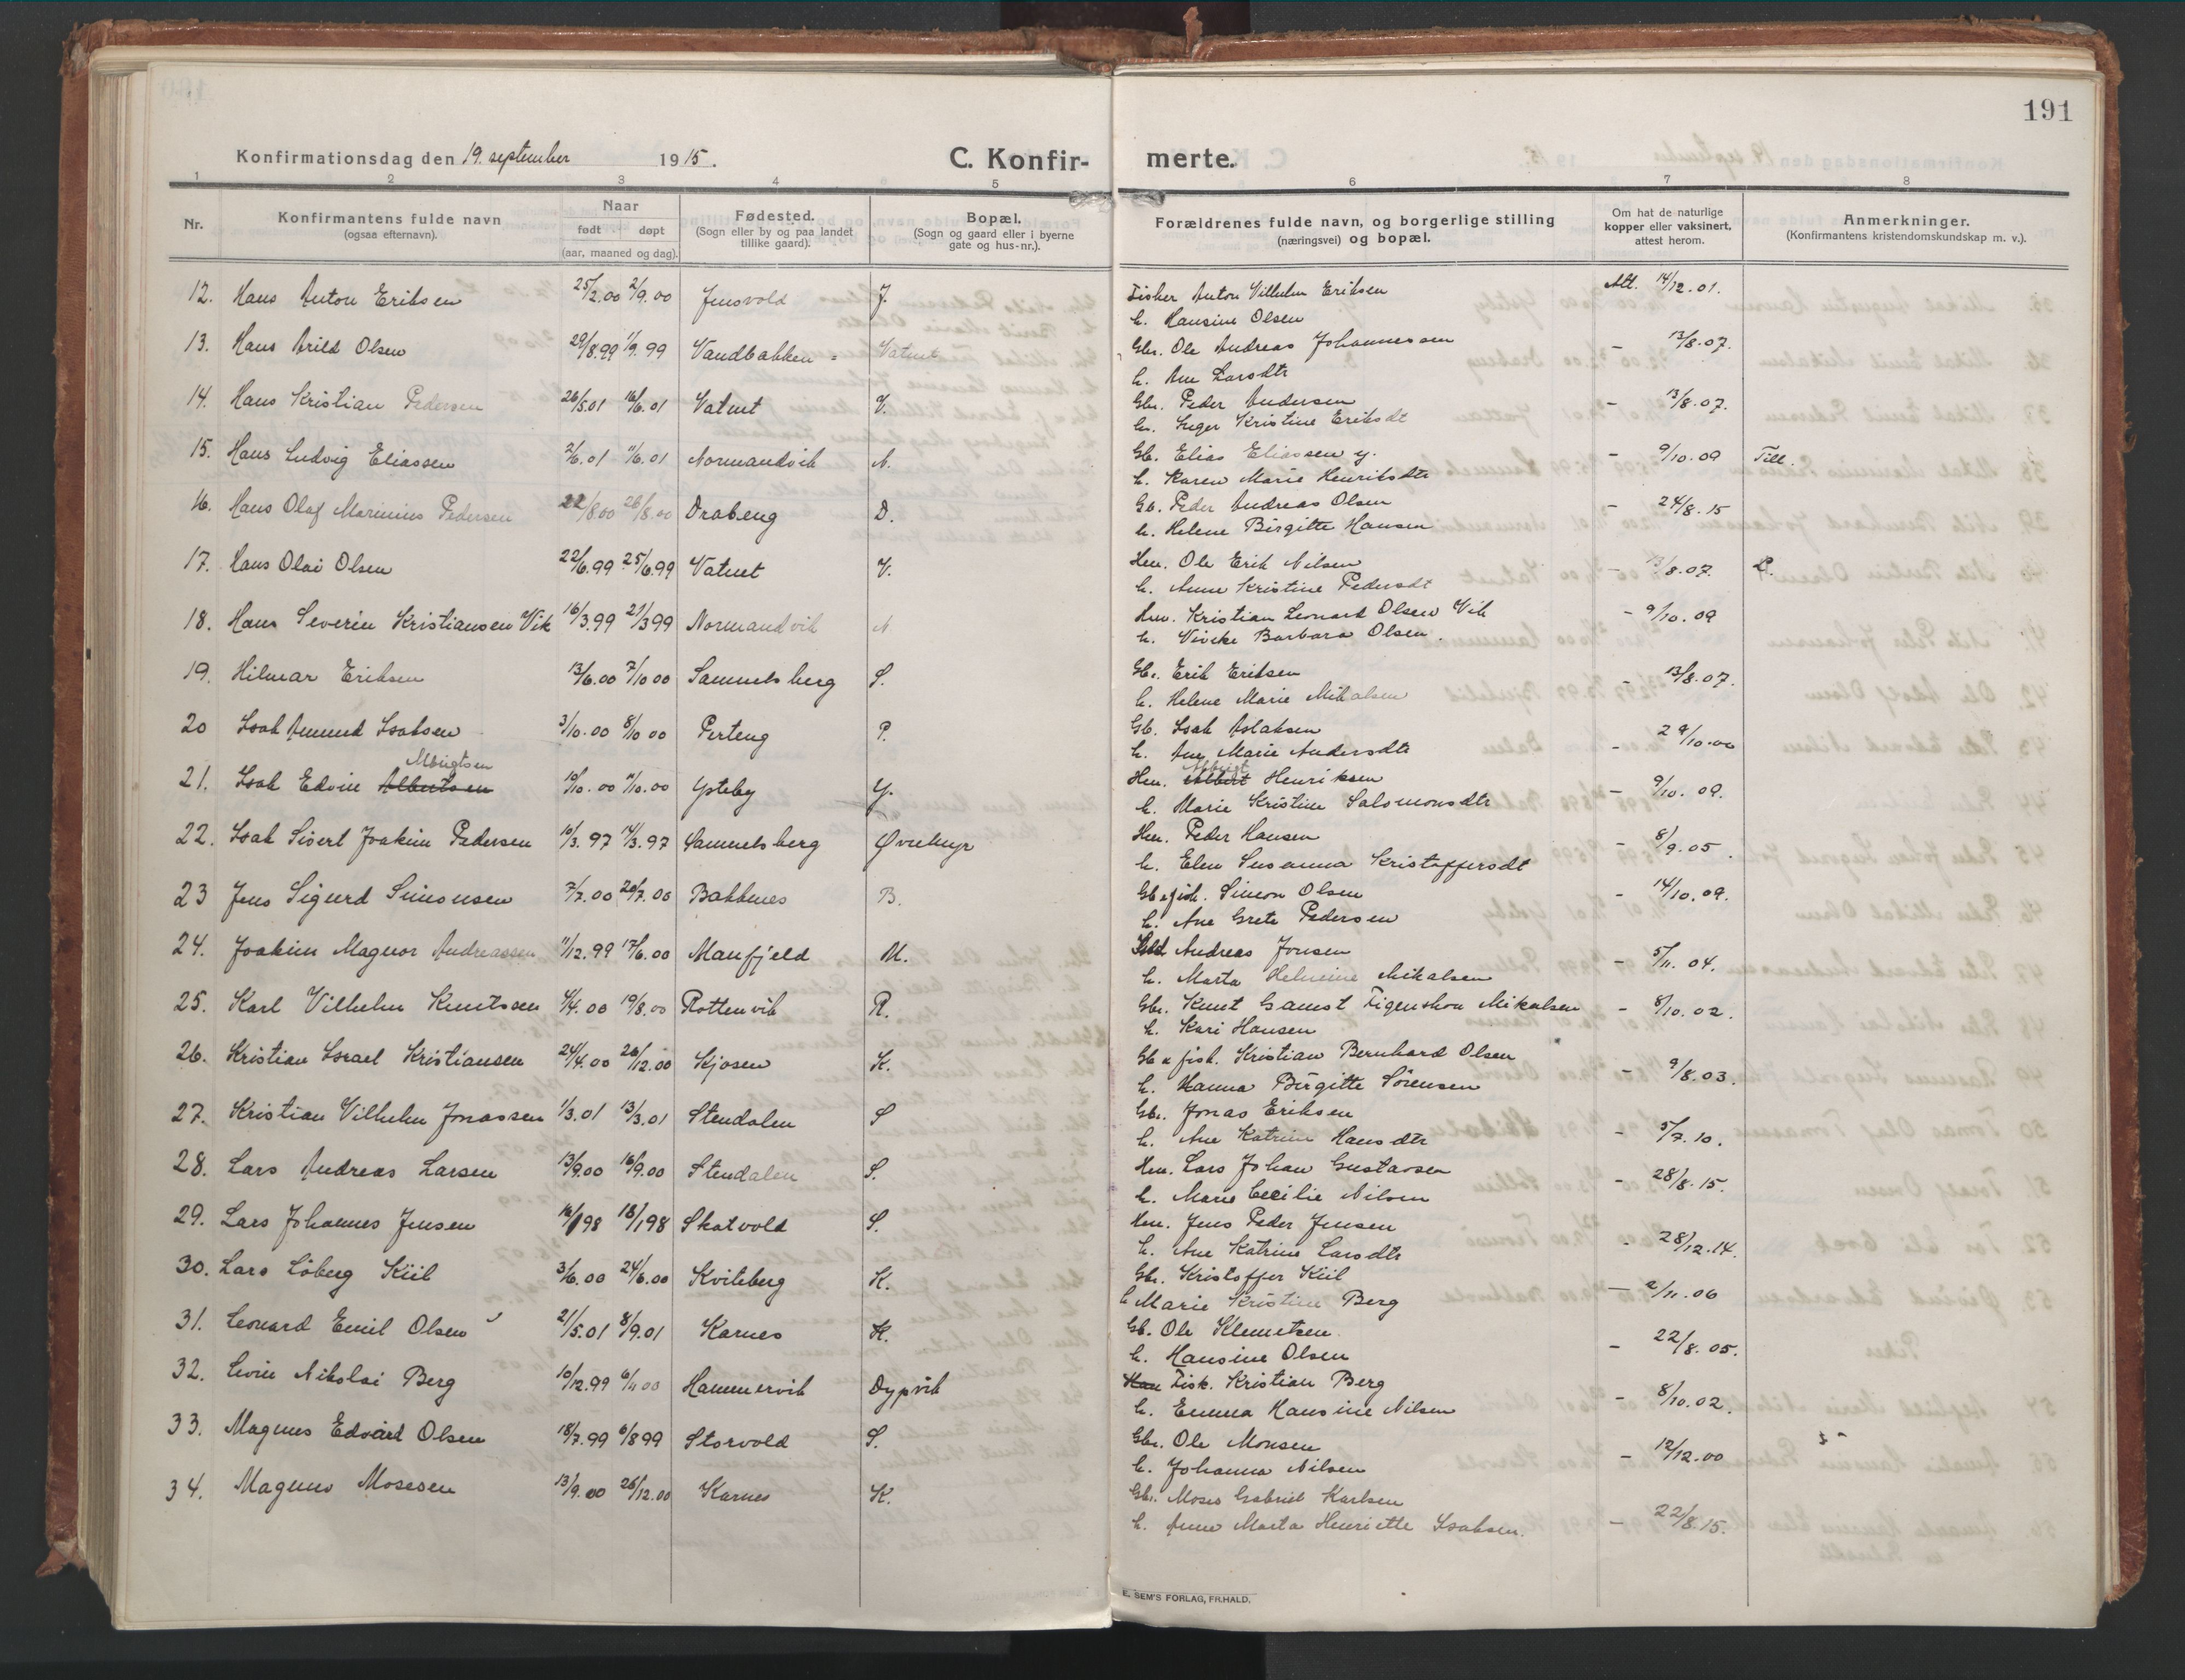 191
Konfirmationsdag den 19. september 1915. C. Konfirmerte.
1 2 3 4 5 6 7 8
Nr. Konfirmantens fulde navn (ogsaa efternavn). Naar født døpt (aar, maaned og dag). Fødested. (Sogn eller by og paa landet tillike gaard). Bopæl. (Sogn og gaard eller i byerne gate og hus-nr.). Forældrenes fulde navn, og borgerlige stilling (næringsvei) og bopæl. Om hat de naturlige kopper eller vaksinert, attest herom. Anmerkninger. (Konfirmantens kristendomskundskap m. v.).
12. Hans Anton Eriksen 25/2.00 2/9.00 Jensvold J. Fisker Anton Vilhelm Eriksen Att. 14/12.01.
h. Hansine Olsen
13. Hans Arild Olsen 29/8.99 1/9.99 Vandbakken = Vatnet Gbr. Ole Andreas Johannessen - 13/8.07.
h. Ane Larsdtr
14. Hans Kristian Pedersen 26/5.01 16/6.01 Vatnet V. Gbr. Peder Andersen - 13/8.07.
h. Inger Kristine Eriksdt
15. Hans Ludvig Eliassen 2/6.01 11/6.01 Normandvik N. Gb. Elias Eliassen y. - 9/10.09 Till.
h. Karen Marie Henriksdtr
16. Hans Olaf Marinius Pedersen 22/8.00 26/8.00 Drabeng D. Gb. Peder Andreas Olsen - 24/8.15
h. Helene Birgitte Hansen
17. Hans Olai Olsen 22/6.99 25/6.99 Vatnet V. Hm. Ole Erik Nilsen - 13/8.07.
h. Anne Kristine Pedersdt
18. Hans Severin Kristiansen Vik 16/3.99 21/3.99 Normandvik N Hm. Kristian Leonard Olsen Vik - 9/10.09
h. Vivike Barbara Olsen.
19. Hilmar Eriksen 13/6.00 7/10.00 Samuelsberg S. Gb. Erik Eriksen - 13/8.07.
h. Helene Marie Mikalsen
20 Isak Amund Isaksen 3/10.00 8/10.00 Perteng P. Gb. Isak Aslaksen - 29/10.00
h. Ane Marie Andersdtr
21. Isak Edvin Albertsen Albrigtsen 10/10.00 11/10.00 Ysteby Y. Hm. Albert Albrigt Henriksen - 9/10.09.
h. Marie Kristine Salomonsdtr
22. Isak Sivert Joakim Pedersen 10/3.97 14/3.97 Samuelsberg Øvermyr Hm. Peder Hansen - 8/9.05.
h. Elen Susanna Kristoffersdt
23 Jens Sigurd Simonsen 7/7.00 20/7.00 Bakkenes B. Gb & fisk. Simon Olsen - 14/10.09.
h. Ane Grete Pedersen
24. Joakim Magnor Andreassen 11/12.99 17/6.00 Manfjeld M. Andreas Jonsen - 5/11.04.
h. Marta Helmine Mikalsen
25. Karl Vilhelm Knutsen 4/4.00 19/8.00 Rottenvik R. Gbr. Knut Gamst Figenskou Mikalsen - 8/10.02.
h. Kari Hansen
26. Kristian Israel Kristiansen 24/4.00 26/12.00 Kjosen K. Gb & fisk. Kristian Bernhard Olsen - 9/8.03.
h. Hanna Birgitte Sørensen
27. Kristian Vilhelm Jonassen 1/3.01 13/3.01 Stendalen S Gb. Jonas Eriksen - 5/7.10.
h. Ane Katrine Hansdtr
28. Lars Andreas Larsen 13/9.00 16/9.00 Stendalen S. Hm. Lars Johan Gustavsen - 28/8.15.
h. Marie Cecilie Nilsen
29. Lars Johannes Jensen 16/1 98 18/1 98 Skatvold S. Hm. Jens Peder Jensen - 28/12.14.
h. Ane Katrine Larsdtr
30. Lars Løberg Kiil 3/6.00 24/6.00 Kviteberg K. Gbr. Kristoffer Kiil - 2/11.06
h Marie Kristine Berg
31. Leonard Emil Olsen 21/5.01 8/9.01 Karnes K. Gb. Ole Klemetsen - 22/8.05.
h. Hansine Olsen
32. Levin Nikolai Berg 10/12.99 6/4 00 Hammervik Dypvik Fisk. Kristian Berg - 8/10.02.
h. Emma Hansine Nilsen
33. Magnus Edvard Olsen 18/7.99 6/8 99 Storvold S. Gbr. Ole Monsen - 12/12.00
h. Johanna Nilsen
34. Magnus Mosesen 13/9.00 26/12.00 Karnes K. Gb. Moses Gabriel Karlsen - 22/8.15.
h. Anne Marta Henriette Isaksen.
E. SEM'S FORLAG, FR.HALD.